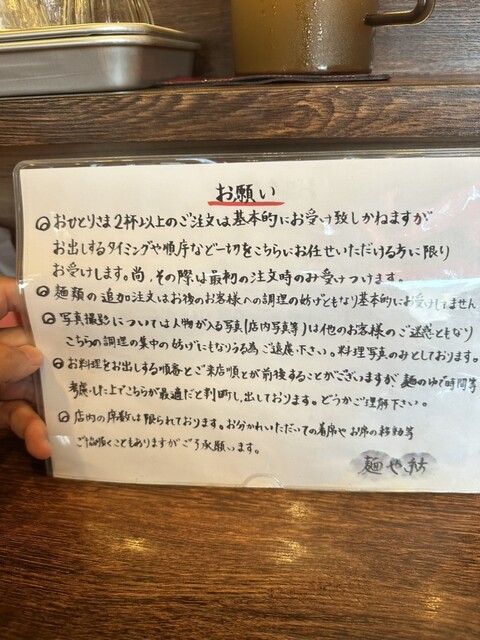 お願い
おひとりさま2杯以上のご注文は基本的にお受け致しかねますが
お出しするタイミングや順序など一切をこちらにお任せいただける方に限り
お受けします。尚、その際は最初の注文時のみ受けつけます。
麺類の追加注文はお後のお客様への調理の妨げともなり基本的にお受けしてません
写真撮影については人物が入る写真(店内写真等)は他のお客様のご迷惑ともなり
こちらの調理の集中の妨げにもなりうる為ご遠慮下さい。料理写真のみとしております。
お料理をお出しする順番とご来店順とが前後することがございますが麺のゆで時間等
考慮した上でこちらが最適だと判断し、出しております。どうかご理解下さい。
店内の席数は限られております。お分かれいただいての着席やお席の移動等
ご協力頂くこともありますがご了承願います。
麺や